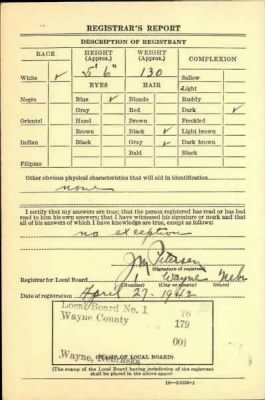 REGISTRAR'S REPORT
DESCRIPTION OF REGISTRANT
RACE HEIGHT (Approx.) WEIGHT (Approx.) COMPLEXION
White ✓ 5' 6" 130 Sallow
EYES HAIR Light
Negro Blue ✓ Blonde Ruddy
Gray Red Dark ✓
Oriental Hazel Brown Freckled
Brown Black ✓ Light brown
Indian Black Gray ✓ Dark brown
Bald Black
Filipino
Other obvious physical characteristics that will aid in identification
none
I certify that my answers are true; that the person registered has read or has had
read to him his own answers; that I have witnessed his signature or mark and that
all of his answers of which I have knowledge are true, except as follows:
no exception
J M Petersen
(Signature of registrar)
Registrar for Local Board 1 Wayne Nebr
(Number) (City or county) (State)
Date of registration April 27-1942
Local Board No. 1 76
Wayne County 179
001
Wayne, Nebraska
(STAMP OF LOCAL BOARD)
(The stamp of the Local Board having jurisdiction of the registrant
shall be placed in the above space)